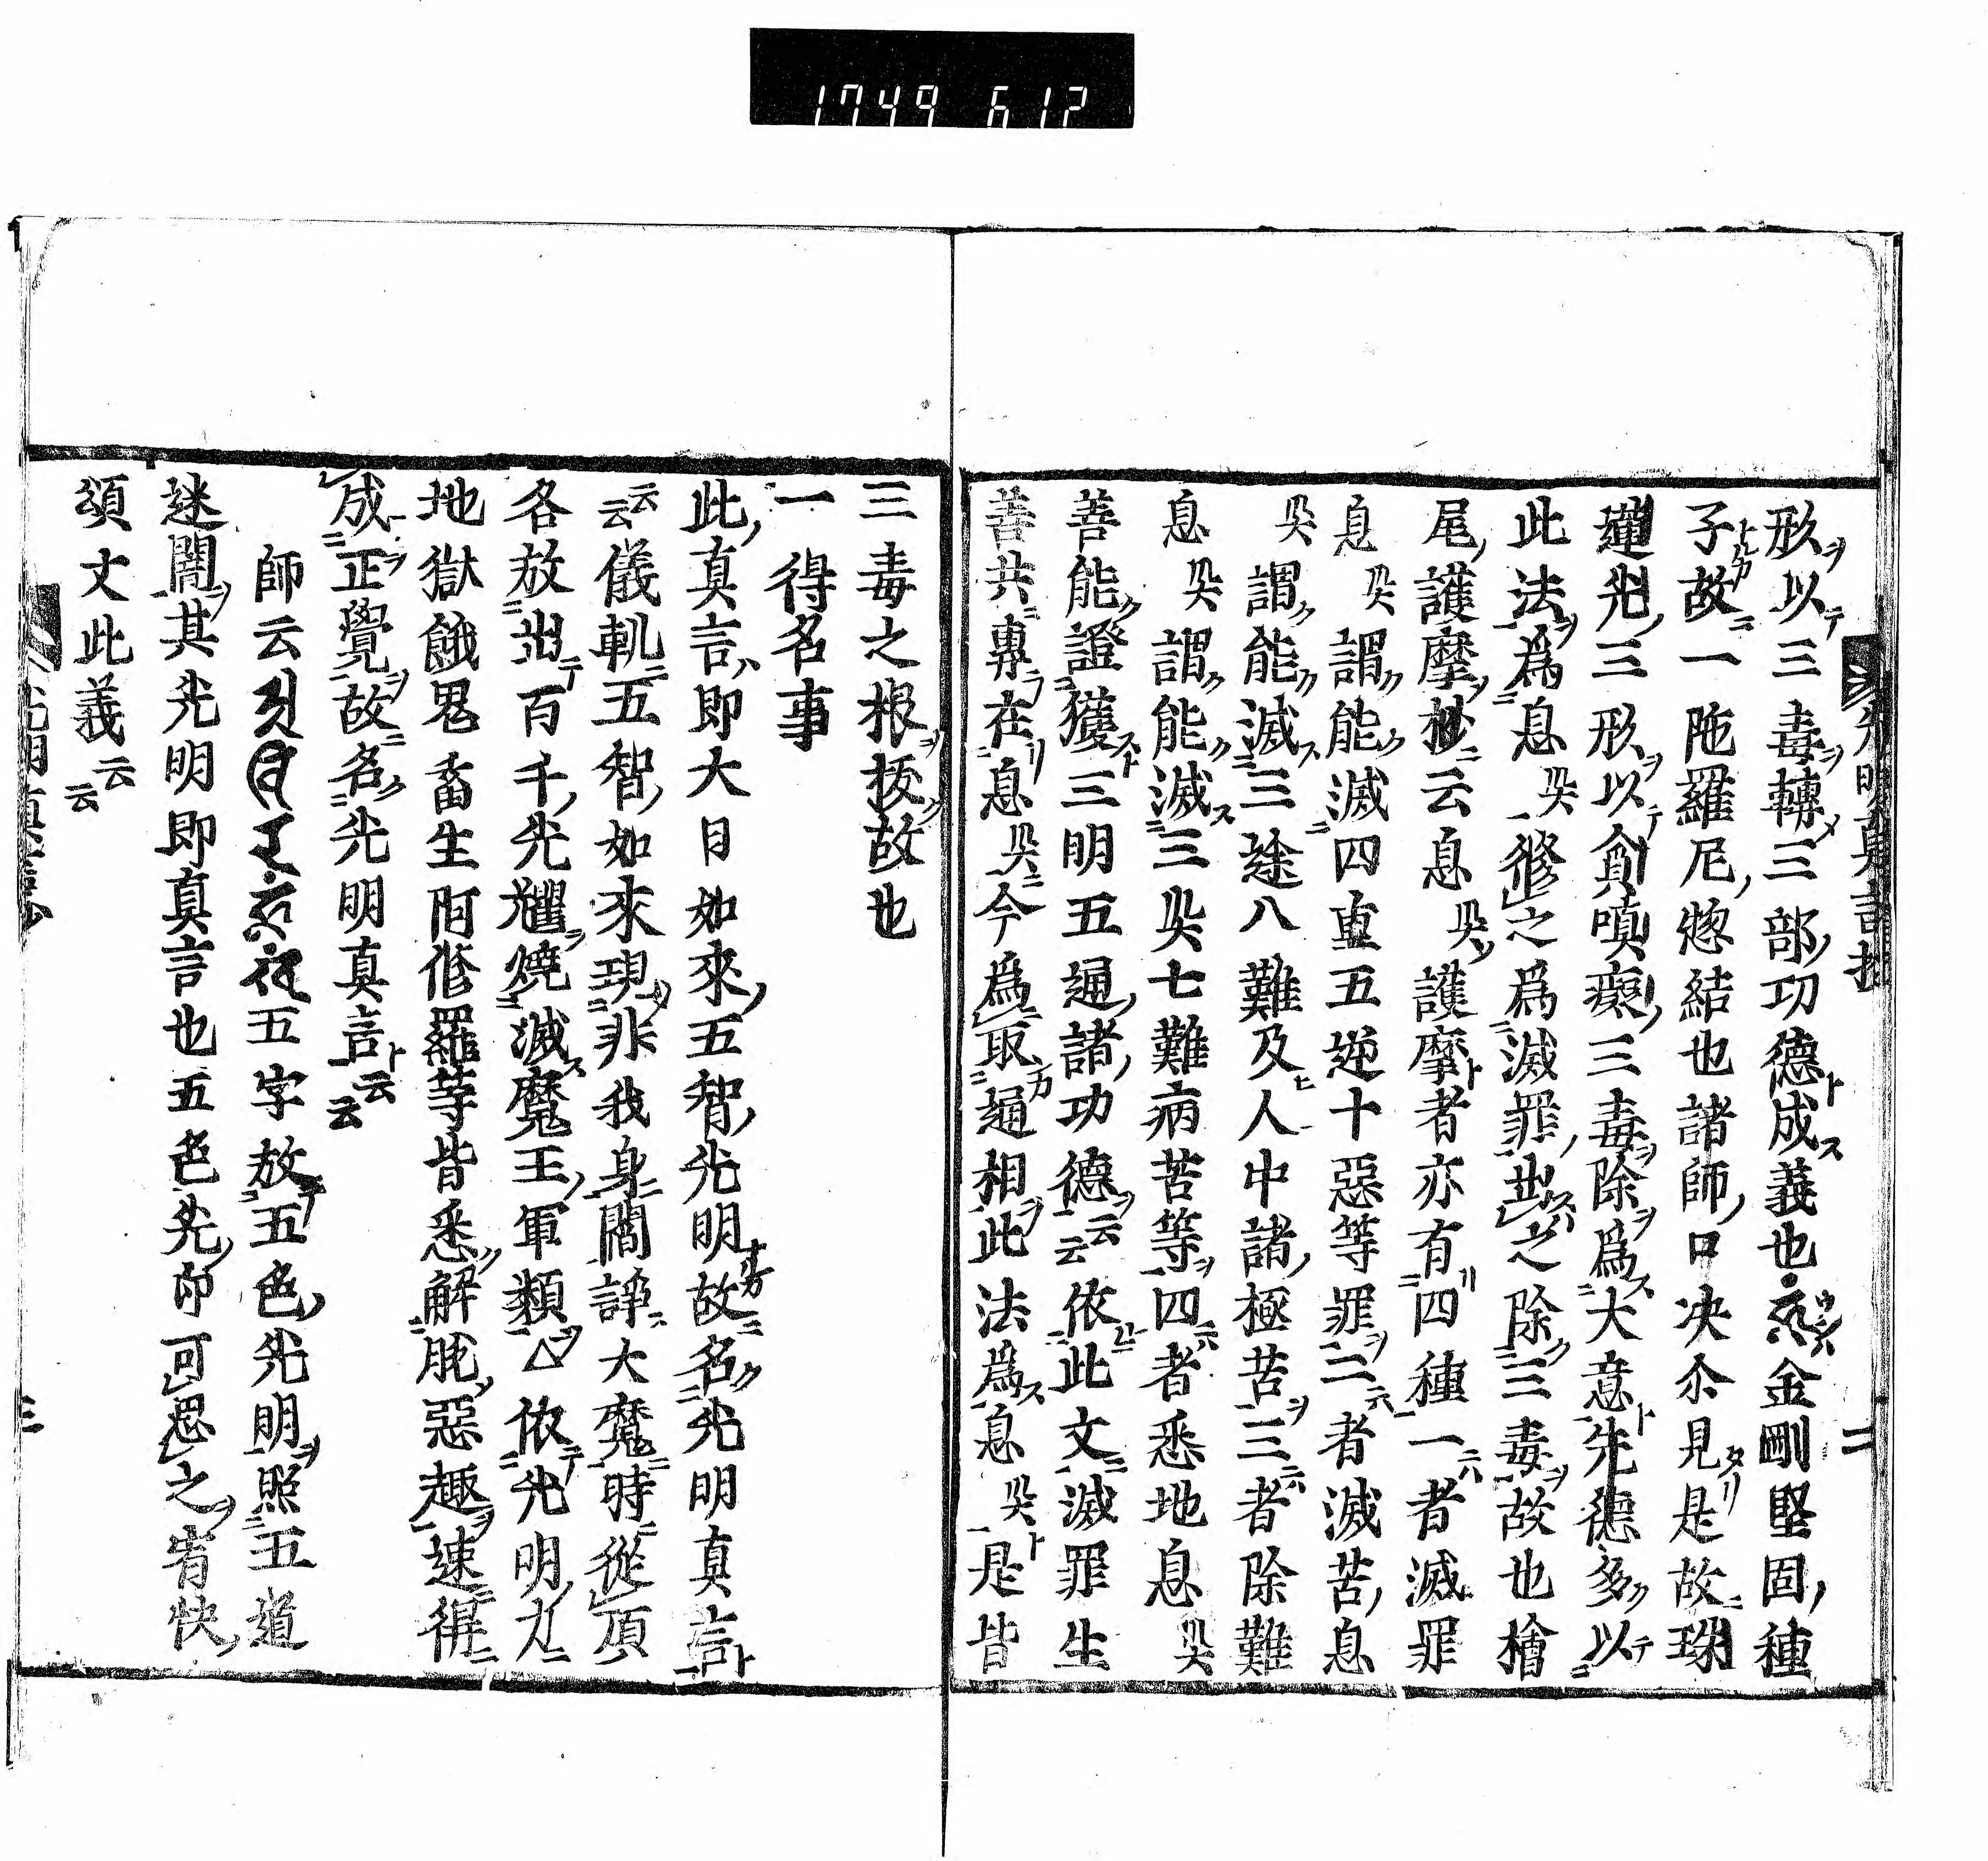 1749 612
光明真言抄 二
形以三毒轉三部功德成義也 金剛堅固種
子故一陁羅尼惣結也諸師口决尒見是故珠
蓮光三形以貪嗔瘼三毒除爲大意先德多以
此法爲息災修之爲滅罪此之除三毒故也檜
尾護摩抄云息災護摩者亦有四種一者滅罪
息災謂能滅四重五逆十惡等罪二者滅苦息
災謂能滅三途八難及人中諸極苦三者除難
息災謂能滅三災七難病苦等四者悉地息災
善能證獲三明五通諸功德云云依此文滅罪生
善共專在息災今爲取通相此法爲息災是皆
三毒之根拔故也
一得名事
此真言即大日如來五智光明故名光明真言
云云儀軌五智如來現非我身閻諍大魔時從頂
各放出百千光耀燒滅魔王軍類 依光明力
地獄餓鬼畜生阿修羅等皆悉解脫惡趣速得
成正覺故名光明真言云云
師云 五字放五色光明照五道
迷闇其光明即真言也五色光印可思之宥快
頌文此義云云
光明真言抄 三